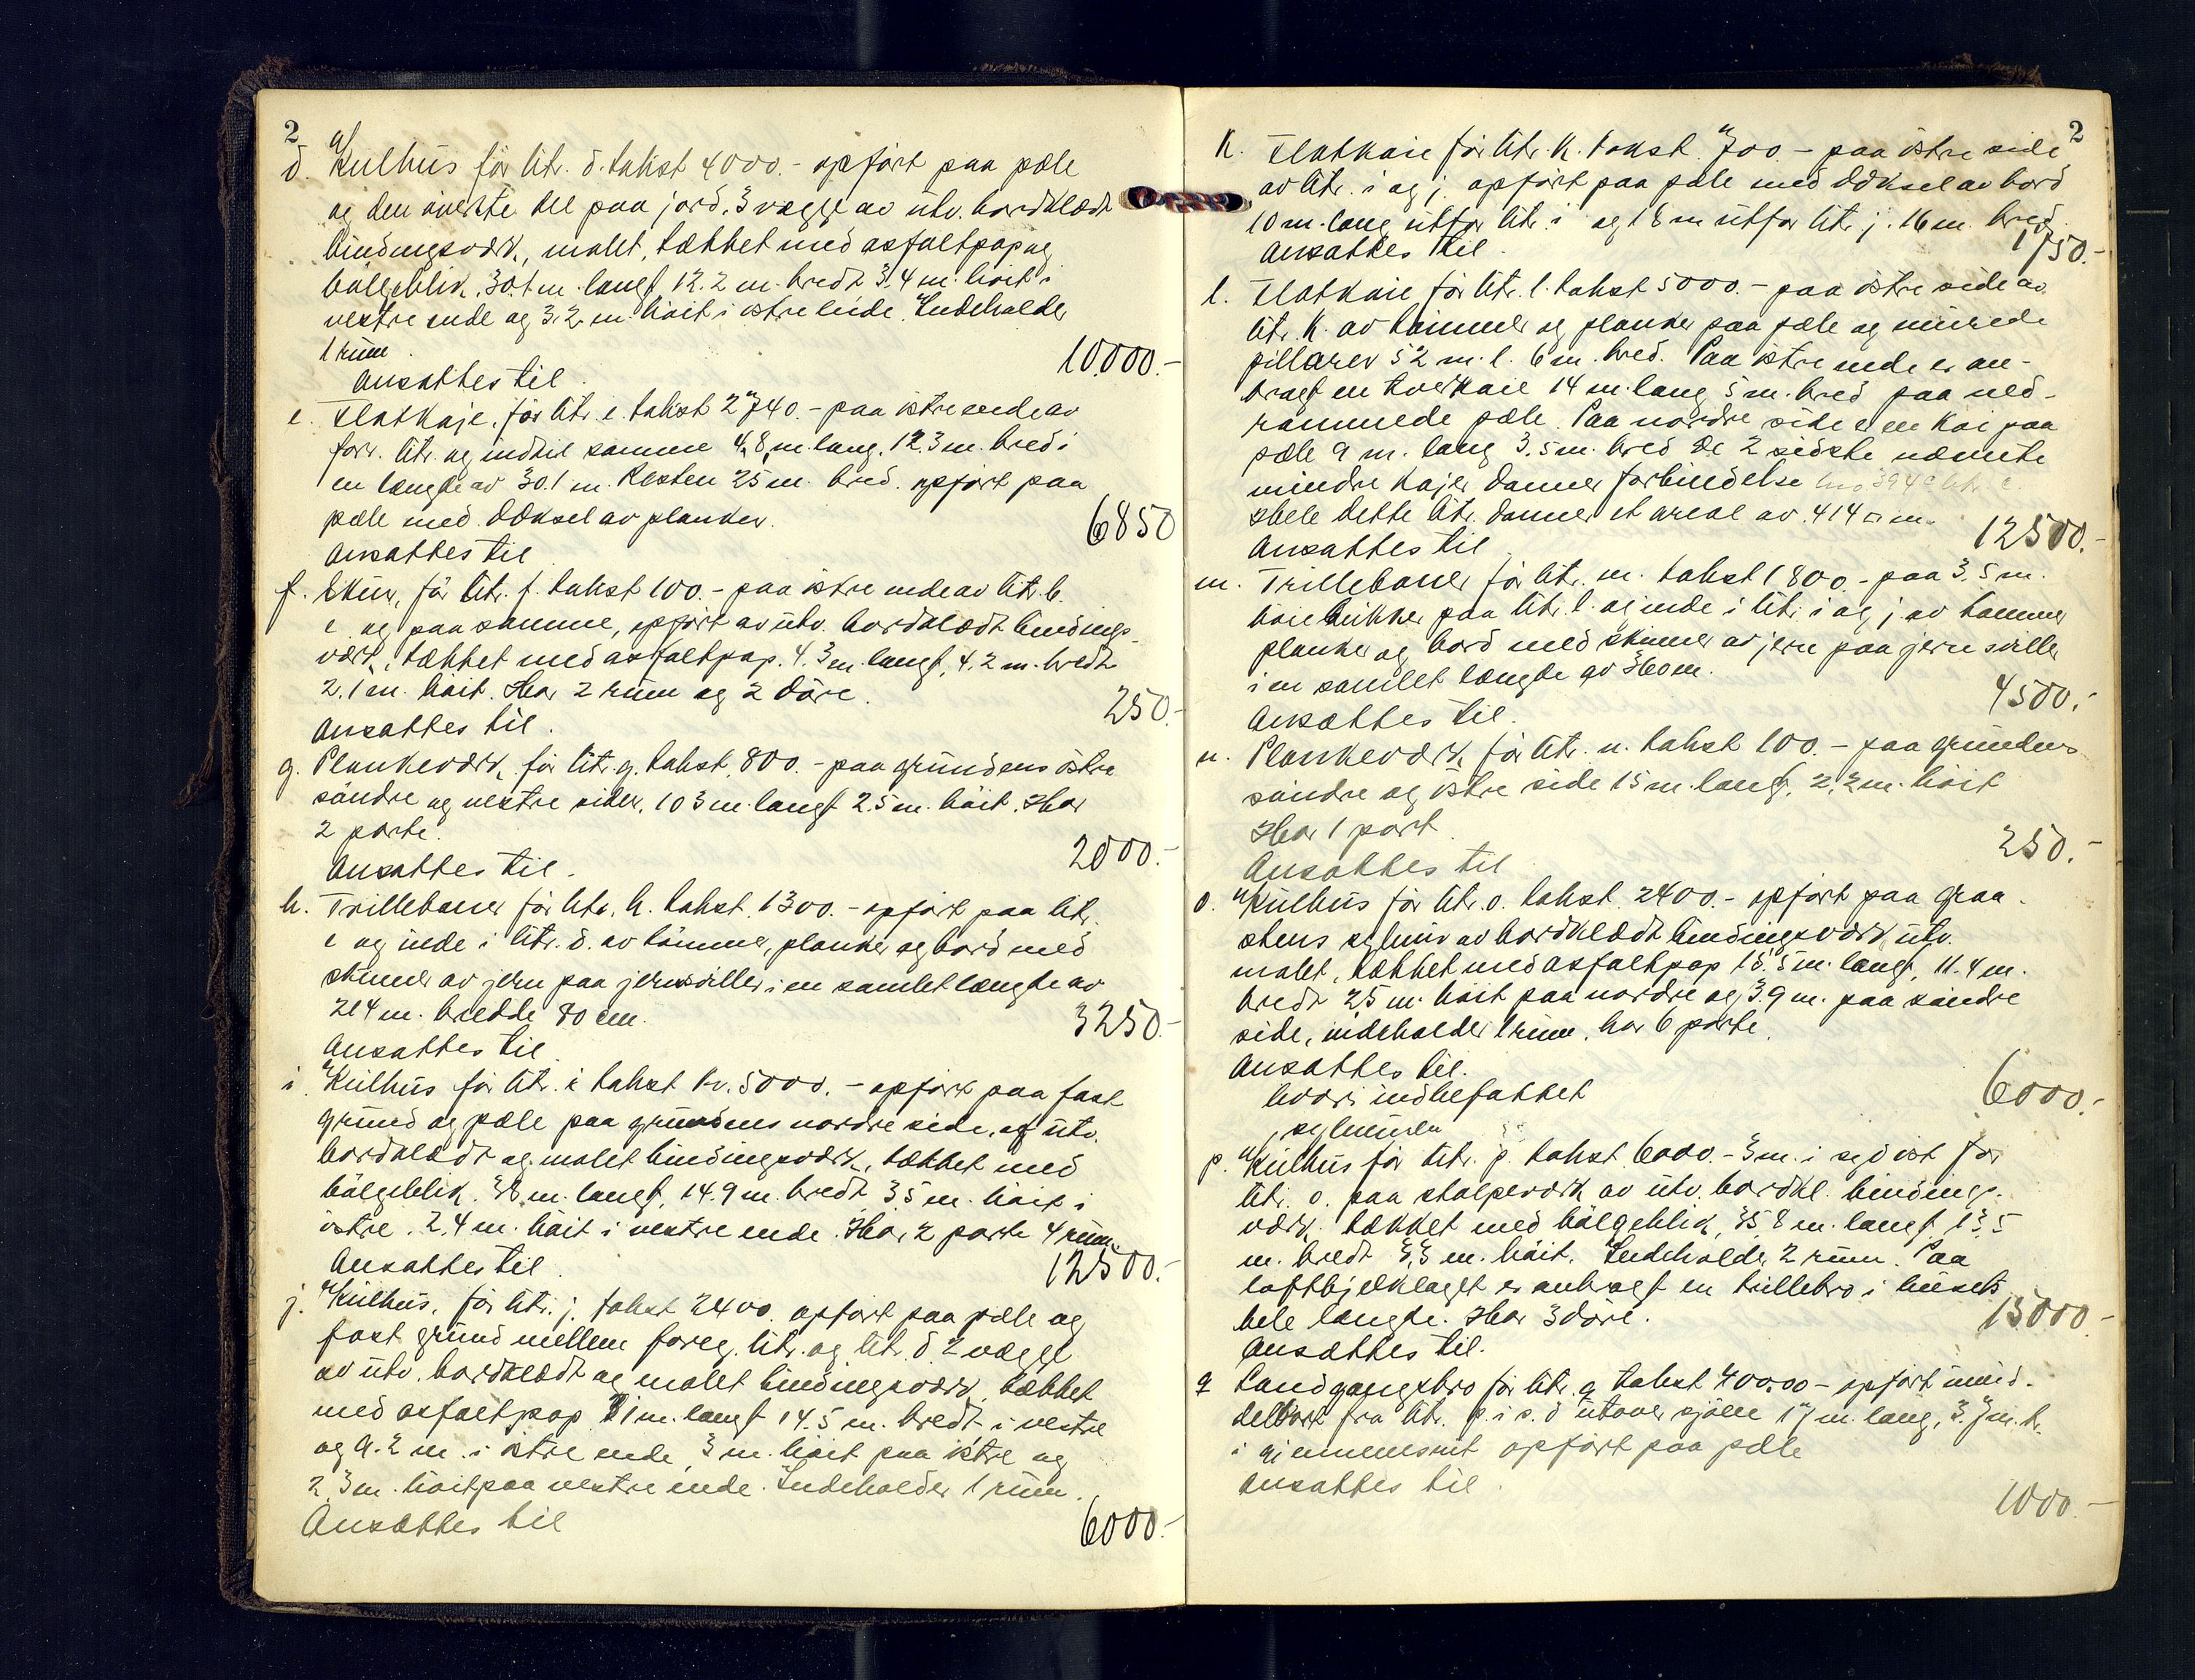 2
d. Kulhus før litr. d. takst 4000.- opført paa pæle
og den øverste del paa jord. 3 vægge av utv. bordklædt
bindingsverk, malet, tækket med asfaltpap og
bølgeblik, 30.1 m. langt, 12.2 m. bredt 3.4 m. høit i
vestre ende og 3.2 m. høit i østre ende. Indeholder
1 rum.
Ansættes til 10.000.-
e. Flatkaje, før litr. e. takst 2740.- paa østre ende av
forr. litr. og indtil samme 4,8 m. lang, 12.3 m. bred i
en længde av 30.1 m. Resten 25 m. bred. opført paa
pæle med dæksel av planker.
Ansættes til 6850
f. Skur, før litr. f. takst 100.- paa østre ende av litr. b.
e og paa samme, opført av utv. bordklædt bindings-
værk, tækket med asfaltpap. 4.3 m. langt, 4.2 m. bredt
2.1 m. høit. Har 2 rum og 2 døre.
Ansættes til. 250.-
g. Plankeværk, før litr. g. takst 800.- paa grundens østre
søndre og vestre sider, 103 m. langt 2.5 m. høit. Har
2 porte.
Ansættes til. 2000.-
h. Trillebaner før litr. h. takst 1300.- opført paa litr.
e og inde i litr. d. av tømmer, planker og bord med
skinner av jern paa jernsviller i en samlet længde av
214 m. bredde 80 cm.
Ansættes til 3250.-
i. Kulhus før litr. i takst kr. 5000.- opført paa fast
grund og pæle paa grundens nordre side, af utv.
bordklædt og malet bindingsværk, tækket med
bølgeblik. 38 m. langt, 14.9 m. bredt 3.5 m. høit i
østre, 2.4 m. høit i vestre ende. Har 2 porte 4 rum.
Ansættes til 12500.-
j. Kulhus, før litr. j. takst 2400. opført paa pæle og
fast grund mellem foreg. litr. og litr. d. 2 vægge
av utv. bordklædt og malet bindingsværk, tækket
med asfaltpap 21 m. langt 14.5 m. bredt i vestre
og 9.2 m. i østre ende, 3 m. høit paa østre og
2.3 m. høit paa vestre ende. Indeholder 1 rum.
Ansættes til 6000.-
2
k. Flatkaie før litr. k. takst 700.- paa østre side
av litr. i og j. opført paa pæle med dæksel av bord
10 m. lang utfor litr. i og 18 m utfor litr. j. 16 m. bred.
Ansættes til 1750.-
l. Flatkaie før litr. l. takst 5000.- paa østre side av
litr. k. av tømmer og planker paa pæle og murede
pillarer 52 m. l. 6 m. bred. Paa østre ende er an-
bragt en tverkaie 14 m. lang 5 m. bred paa ned-
rammede pæle. Paa nordre side er en kai paa
pæle 9 m. lang 3.5 m. bred De 2 sidste nævnte
mindre kajer danner forbindelse
Hele dette litr. danner et areal av 414 □ m.
Ansættes til 12500.-
m. Trillebaner før litr. m. takst 1800.- paa 3.5 m.
høie bukker paa litr. l. og inde i litr. i og j. av tømmer
planker og bord med skinner av jern paa jernsviller
i en samlet længde av 360 m.
Ansættes til. 4500.-
n. Plankeværk, før litr. n. takst 100.- paa grundens
søndre og østre side 15 m. langt, 2,2 m. høit
Har 1 port.
Ansættes til 250.-
o. Kulhus før litr. o. takst 2400.- opført paa graa-
stens sylmur av bordklædt bindingsværk, utv.
malet, tækket med asfaltpap 15.5 m. langt, 11.4 m.
bredt 2,5 m. høit paa nordre og 3.9 m. paa søndre
side, indeholder 1 rum, har 6 porte.
Ansættes til.
hvori indbefattet 6000.-
sylmuren
p. Kulhus før litr. p. takst 6000.- 3 m. i syd øst for
litr. o. paa stolpeværk av utv. bordkl. bindings-
værk, tækket med bølgeblik, 35.8 m. langt, 13,5
m. bredt 3,3 m. høit. Indeholder 2 rum. Paa
loftbjelklaget er anbragt en trillebro i husets
hele længde. Har 3 døre.
Ansættes til. 15000.-
q Landgangsbro før litr. q takst 400.00 - opført umid-
delbart fra litr. p. i s. ø utover sjøen 17 m. lang, 3.7 m. h.
i gjennemsnit opført paa pæle
Ansættes til. 1000.-